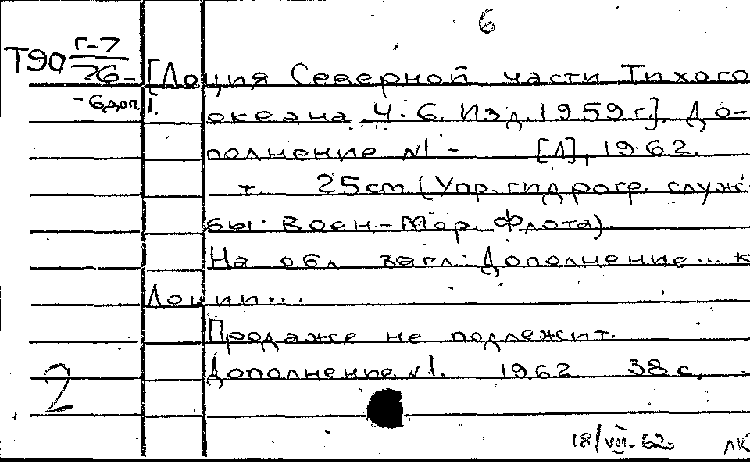 6
Т90 Г-7/26-6доп.
[Лоция Северной части Тихого
океана Ч. 6. Изд. 1959 г]. До-
полнение №1 - [Л], 1962.
т. 25см (Упр. гидрогр. служ-
бы. Воен-Мор. Флота).
На обл загл: Дополнение... к
Лоции...
Продаже не подлежит.
Дополнение №1. 1962 38 с.
2
18/VII-62. ЛК